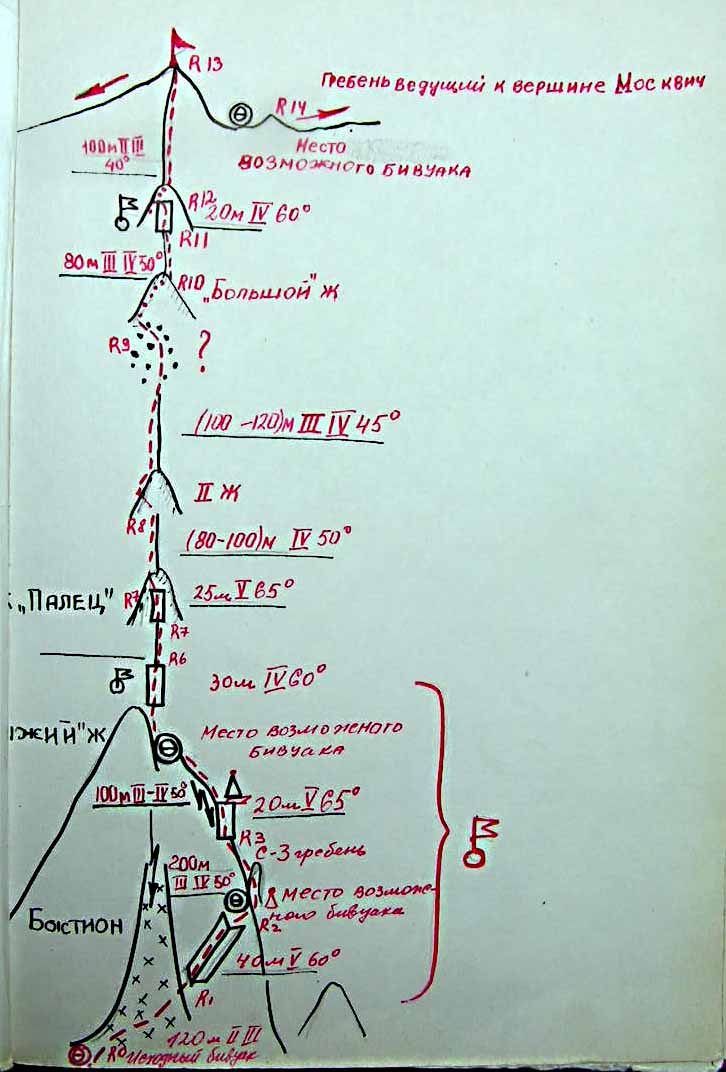 R13
Гребень ведущий к вершине Москвич
R14
Место
возможного бивуака
100м II III
40°
R12
20м IV 60°
R11
80м III IV 50°
R10 „Большой" Ж
R9
?
(100-120)м III IV 45°
II Ж
R8
(80-100)м IV 50°
„Палец"
R7
25м V 65°
R7
R6
30м IV 60°
жий" Ж
Место возможного
бивуака
100м III-IV 50°
20м V 65°
R3
С-З гребень
200м
III IV 50°
Место возможе-
ного бивуака
R2
Бастион
40м V 60°
R1
120м II III
R0 Исходный бивуак